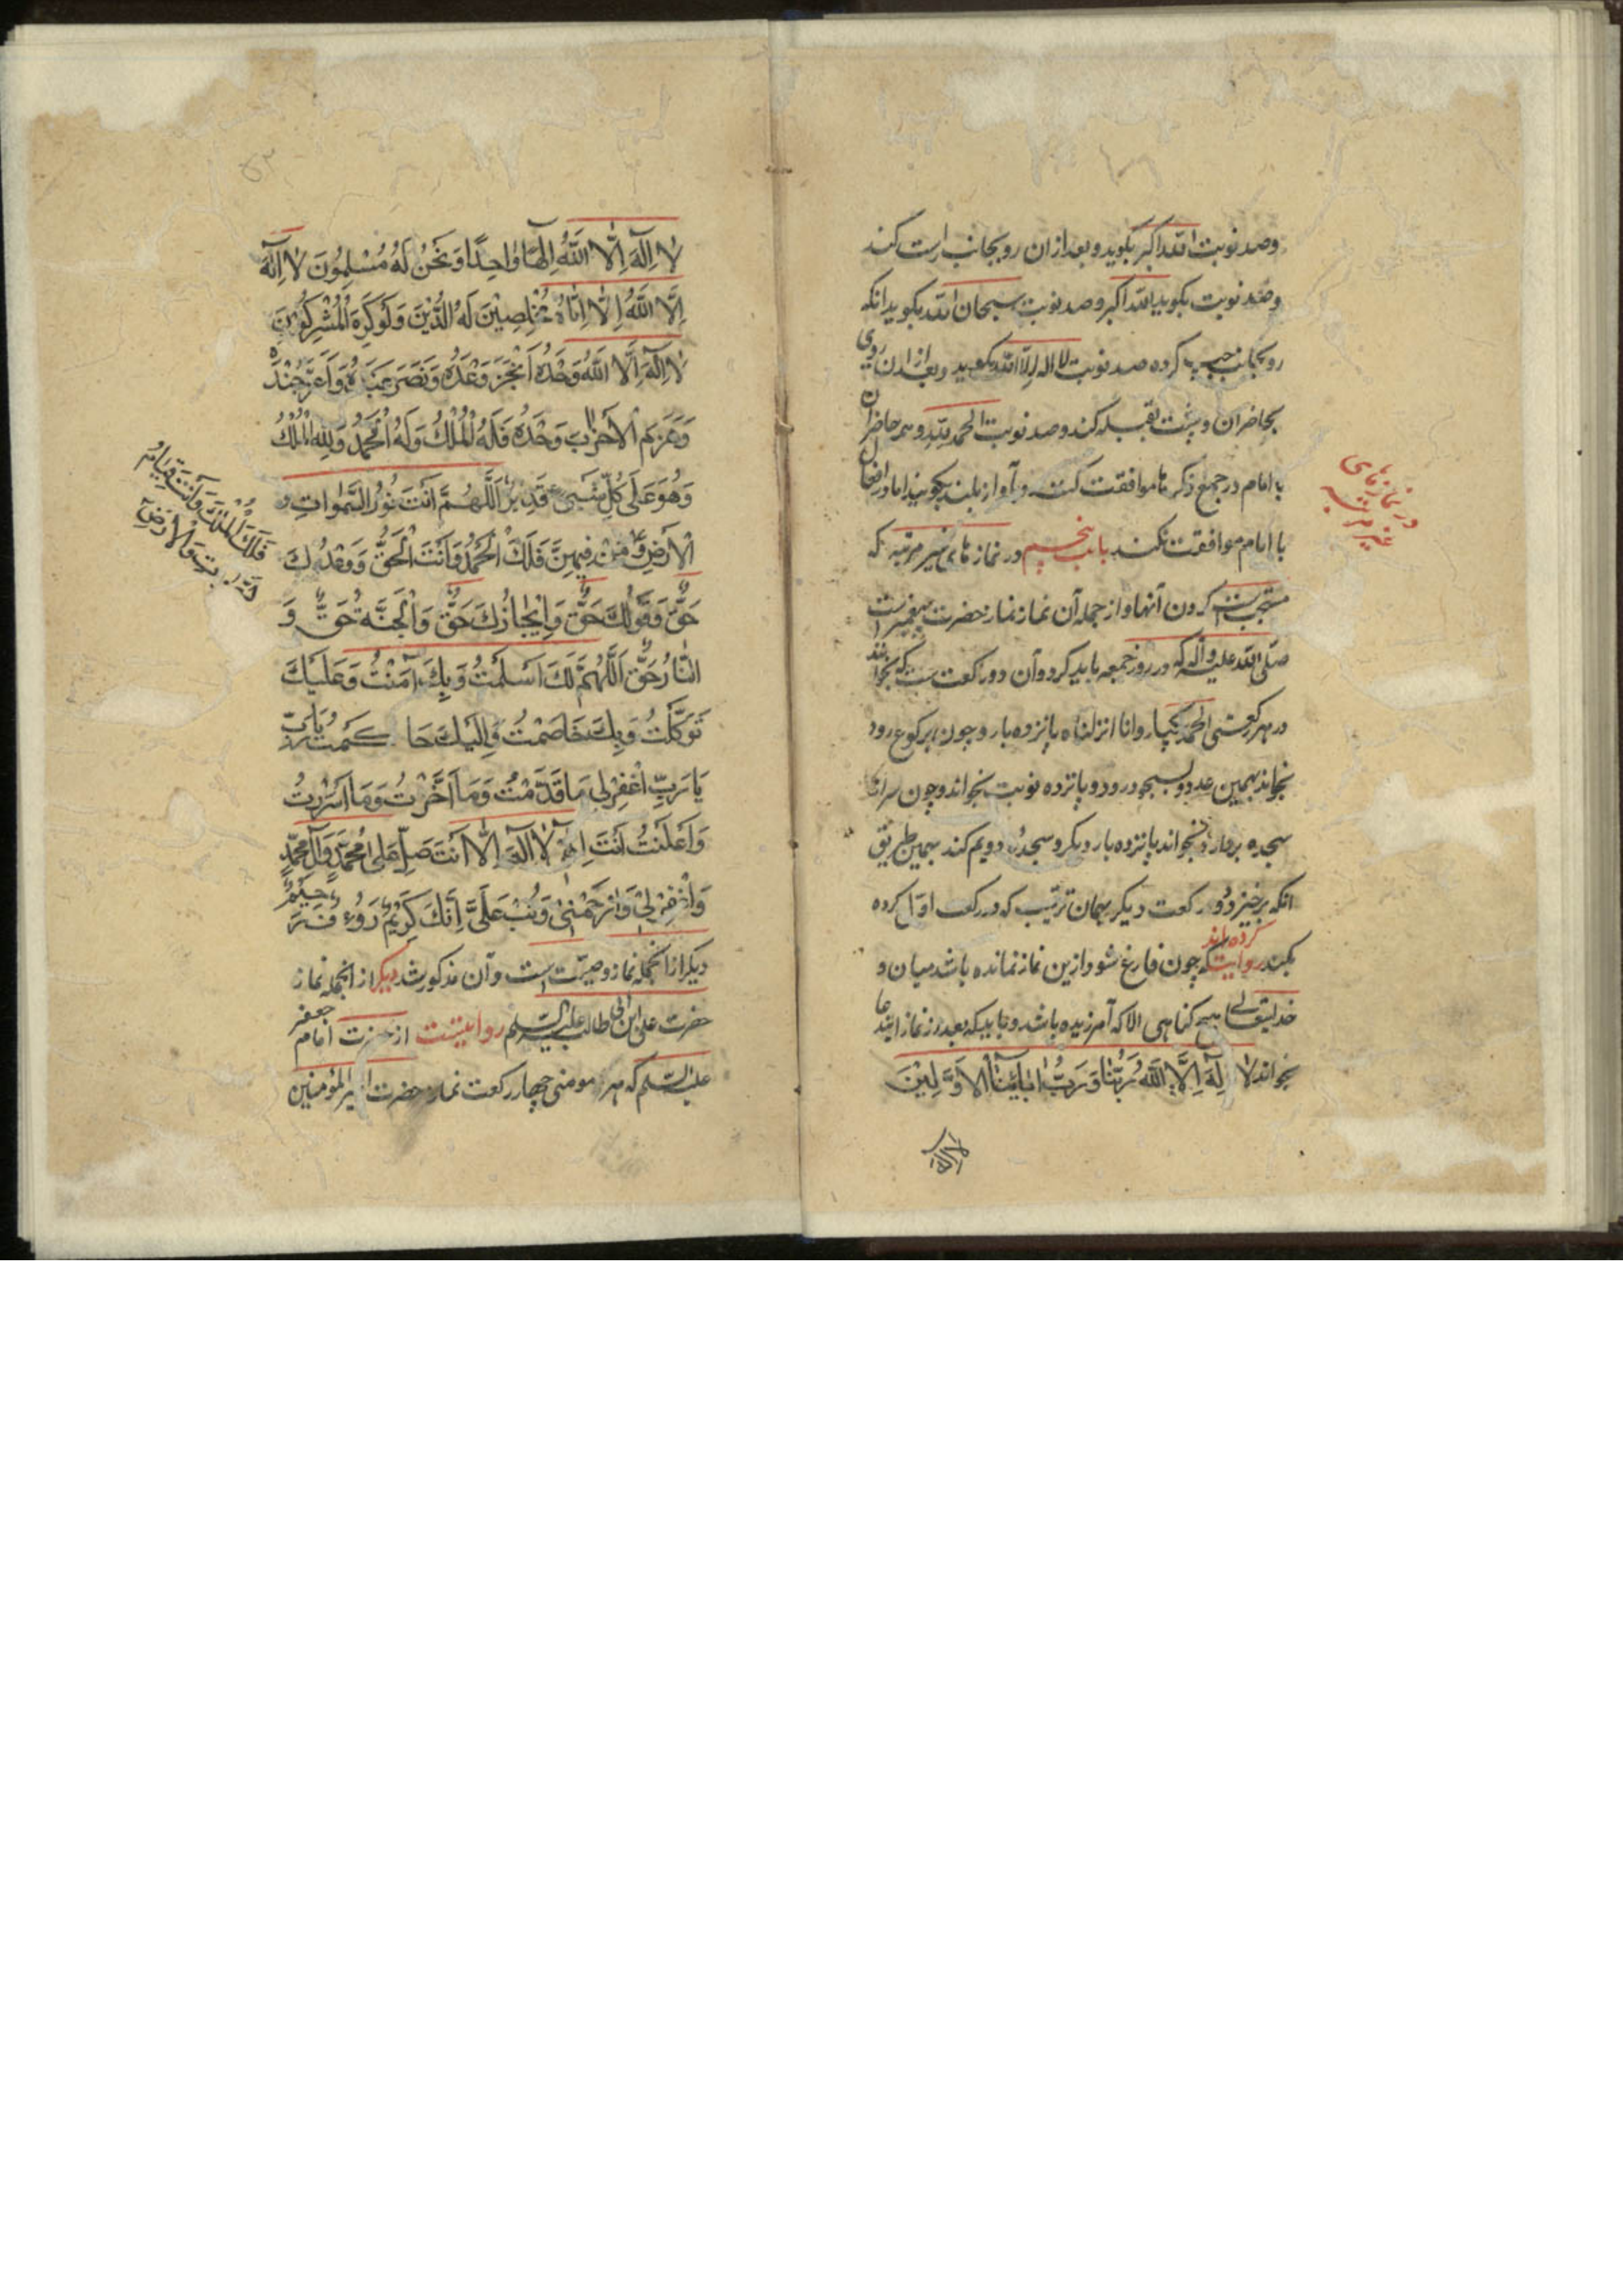 وصد نوبت الله اکبر بکوید و بعد از ان رو بجانب راست کند
وصد نوبت بکوید الله اکبر وصد نوبت سبحان الله بکوید انکه
رو بجانب چپ کرده صد نوبت لا اله الا الله بکوید و بعد از ان روی
بحاضران و پشت بقبله کند وصد نوبت الحمد لله و همه حاضران
با امام در جمیع ذکرها موافقت کنند و بآواز بلند بکویند اما در افعال
با امام موافقت نکنند باب پنجم در نمازهای غیر مرتبه که
مستحب است کردن آنها و از جمله آن نماز نماز حضرت پیغمبر است
صلی الله علیه وآله که در روز جمعه باید کرد و آن دو رکعت است که بخواند
در هر رکعتی الحمد یکبار و انا انزلناه پانزده بار و چون برکوع رود
بخواند بهمین عدد و بسجود رود و پانزده نوبت بخواند و چون سر از
سجده بردارد بخواند پانزده بار دیکر و سجدۀ دویم کند بهمین طریق
انکه برخیزد و رکعت دیکر بهمان ترتیب که در رکعت اول کرده
بکند روایت کرده‌اند که چون فارغ شود ازین نماز نمانده باشد میان او و
خدایتعالی هیچ کناهی الا که آمرزیده باشد و باید که بعد از نماز این دعا
بخواند لا اِلهَ اِلَّا اللَّهُ رَبُّنَا وَرَبُّ اٰبائِنَا الاَوَّلِیْنَ
لا اله
در نمازهای
غیر مرتبه
لا اِلٰهَ اِلَّا اللَّهُ اِلٰهًا وَاحِدًا وَنَحْنُ لَهُ مُسْلِمُونَ لا اِلٰهَ
اِلَّا اللَّهُ لا نعبد اِلَّا اِیَّاهُ مُخْلِصِیْنَ لَهُ الدِّیْنَ وَلَوْ کَرِهَ الْمُشْرِکُونَ
لا اِلٰهَ اِلَّا اللَّهُ وَحْدَهُ اَنْجَزَ وَعْدَهُ وَنَصَرَ عَبْدَهُ وَاَعَزَّ جُنْدَهُ
وَهَزَمَ الْاَحْزَابَ وَحْدَهُ فَلَهُ الْمُلْکُ وَلَهُ الْحَمْدُ
وَهُوَ عَلَی کُلِّ شَیْءٍ قَدِیْرٌ اَللَّهُمَّ اَنْتَ نُورُ السَّمٰوَاتِ و
الْاَرْضِ وَمَنْ فِیهِنَّ فَلَکَ الْحَمْدُ وَاَنْتَ الْحَقُّ وَوَعْدُکَ
حَقٌّ وَقَوْلُکَ حَقٌّ وَاِنْجَازُکَ حَقٌّ وَالْجَنَّةُ حَقٌّ وَ
النَّارُ حَقٌّ اَللَّهُمَّ لَکَ اَسْلَمْتُ وَبِکَ آمَنْتُ وَعَلَیْکَ
تَوَکَّلْتُ وَبِکَ خَاصَمْتُ وَاِلَیْکَ حَاکَمْتُ یَا رَبِّ
یَا رَبِّ اغْفِرْ لِی مَا قَدَّمْتُ وَمَا اَخَّرْتُ وَمَا اَسْرَرْتُ
وَاَعْلَنْتُ اَنْتَ اِلٰهِی لا اِلٰهَ اِلَّا اَنْتَ صَلِّ عَلَی مُحَمَّدٍ وَآلِ مُحَمَّدٍ
وَاغْفِرْ لِیْ وَارْحَمْنِیْ وَتُبْ عَلَیَّ اِنَّکَ کَرِیْمٌ رَؤُفٌ رَحِیْمٌ
دیکر از انجمله نماز وصیّت است و آن مذکور شد دیکر از انجمله نماز
حضرت علی ابن ابی طالب علیه السلم روایتست از حضرت امام جعفر
علیه السلم که هر مومنی چهار رکعت نماز حضرت امیرالمؤمنین